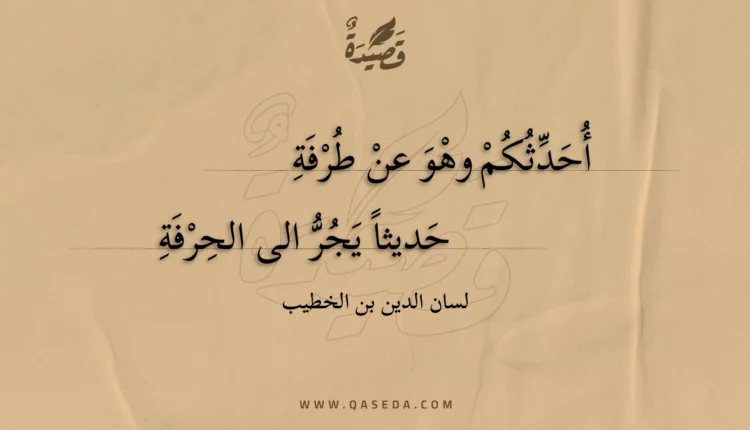 قَصِيْدَةٌ
أُحَدِّثُكُمْ وهْوَ عنْ طُرْفَةِ
حَديثاً يَجُرُّ الى الحِرْفَةِ
لسان الدين بن الخطيب
WWW.QASEDA.COM